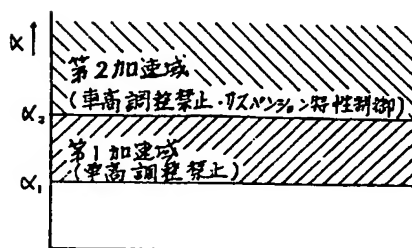 α↑
第2加速域
(車高調整禁止・サスペンション特性制御)
α₂
第1加速域
(車高調整禁止)
α₁